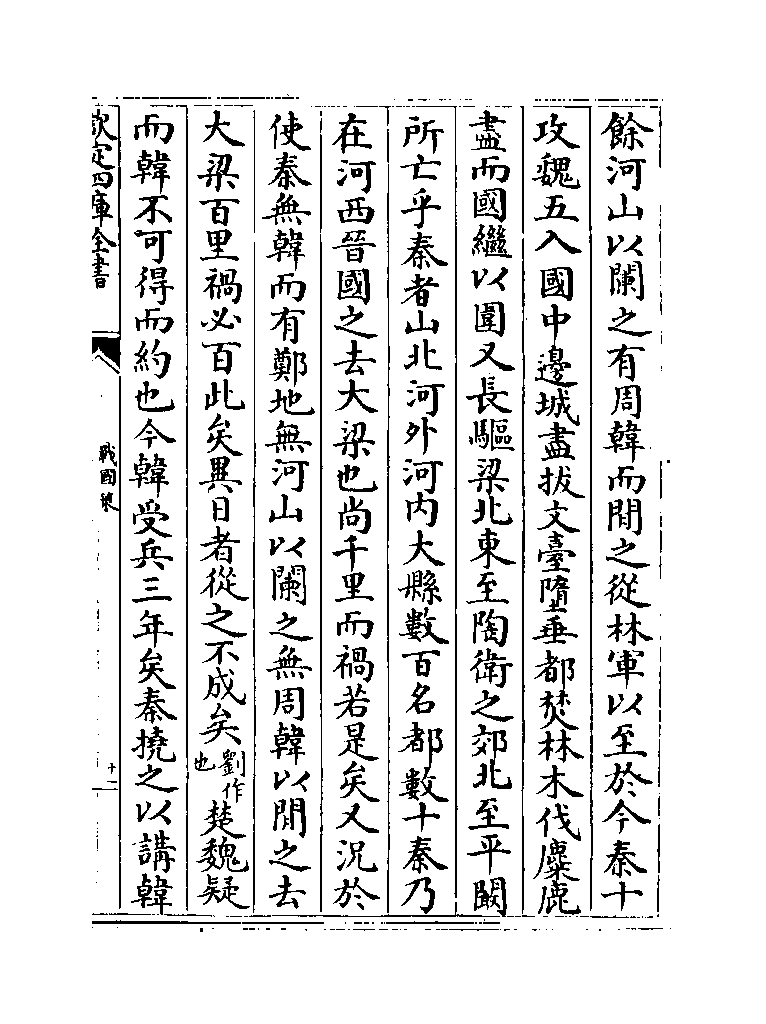 餘河山以闌之有周韓而閒之從林軍以至於今秦十
攻魏五入國中邊城盡拔文臺墮垂都焚林木伐麋鹿
盡而國繼以圍又長驅梁北東至陶衛之郊北至平闞
所亡乎秦者山北河外河内大縣數百名都數十秦乃
在河西晉國之去大梁也尚千里而禍若是矣又況於
使秦無韓而有鄭地無河山以闌之無周韓以閒之去
大梁百里禍必百此矣異日者從之不成矣劉作也楚魏疑
而韓不可得而約也今韓受兵三年矣秦撓之以講韓
欽定四庫全書
戰國策
十一